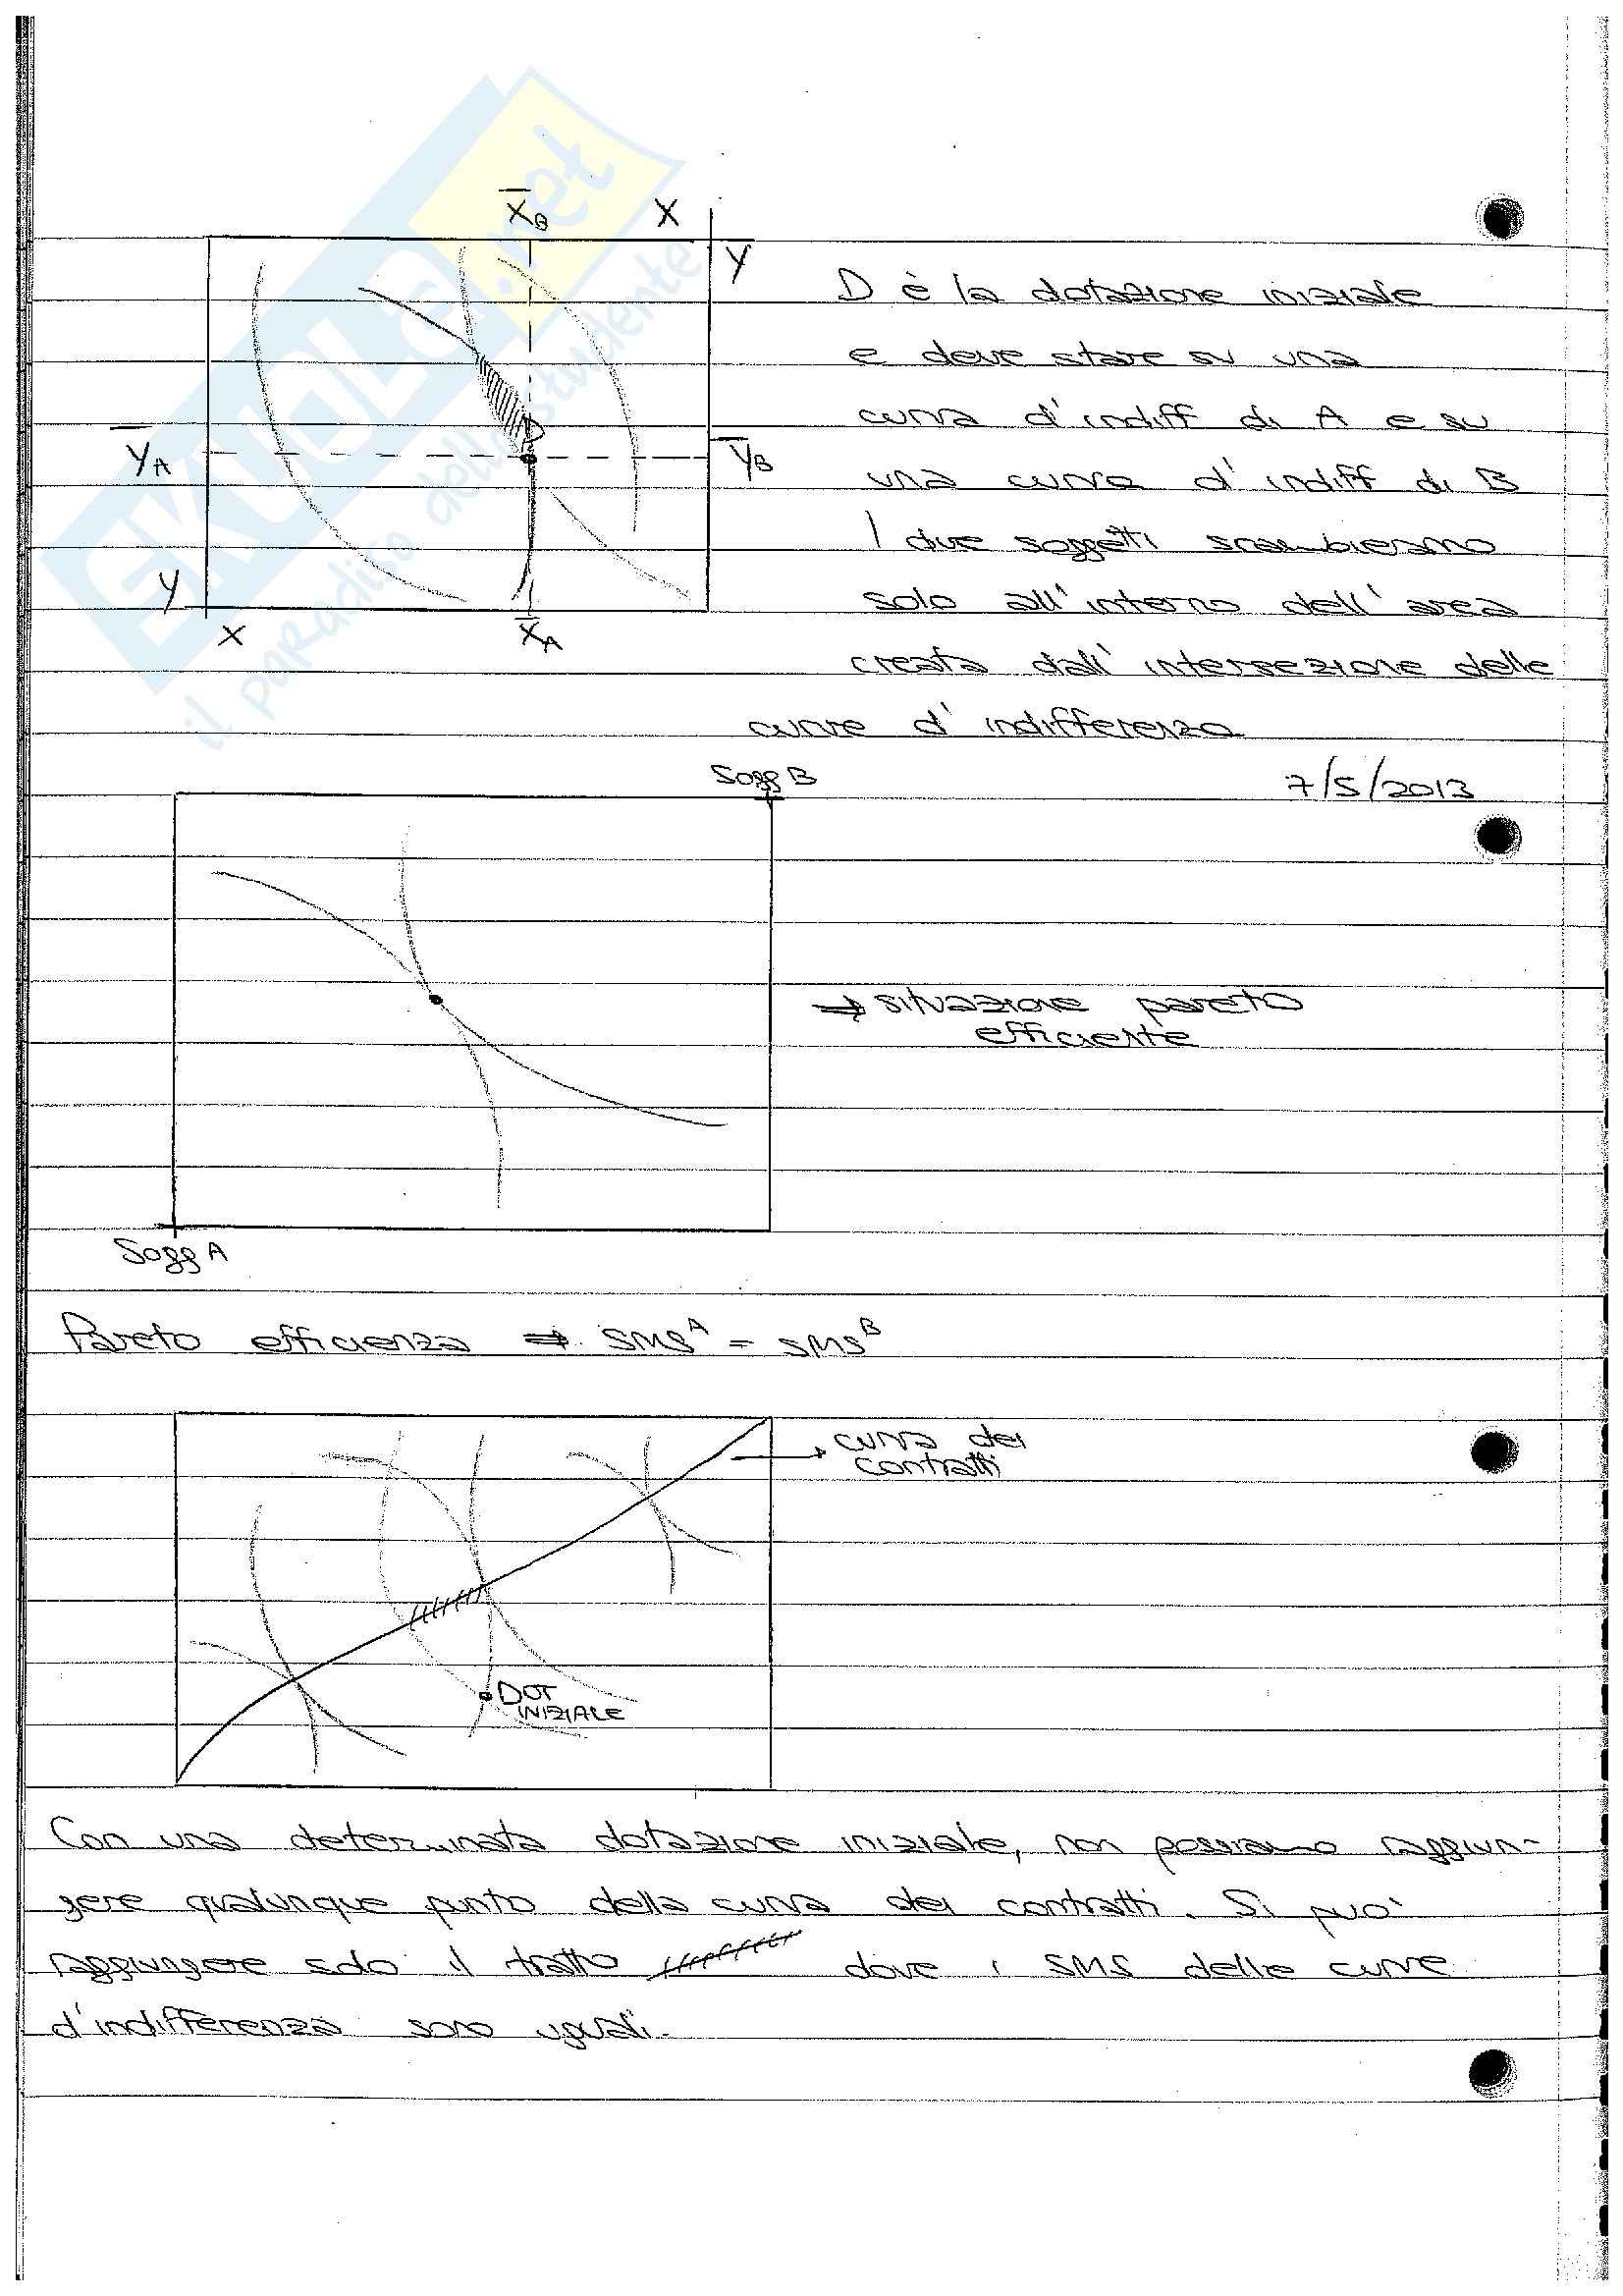 SKUOLA.net
il paradiso dello studente
X̅B X
Y
Y̅A
D
Y̅B
Y
X
X̅A
D è la dotazione iniziale
e deve stare su una
curva d'indiff di A e su
una curva d'indiff di B
I due soggetti scambieranno
solo all'interno dell'area
creata dall'intersezione delle
curve d'indifferenza
7/5/2013
Sogg B
→ situazione pareto
efficiente
Sogg A
Pareto efficienza ⇒ SMS^A = SMS^B
curva dei
contratti
DOT
INIZIALE
Con una determinata dotazione iniziale, non possiamo raggiun-
gere qualunque punto della curva dei contratti. Si può
raggiungere solo il tratto dove i SMS delle curve
d'indifferenza sono uguali.